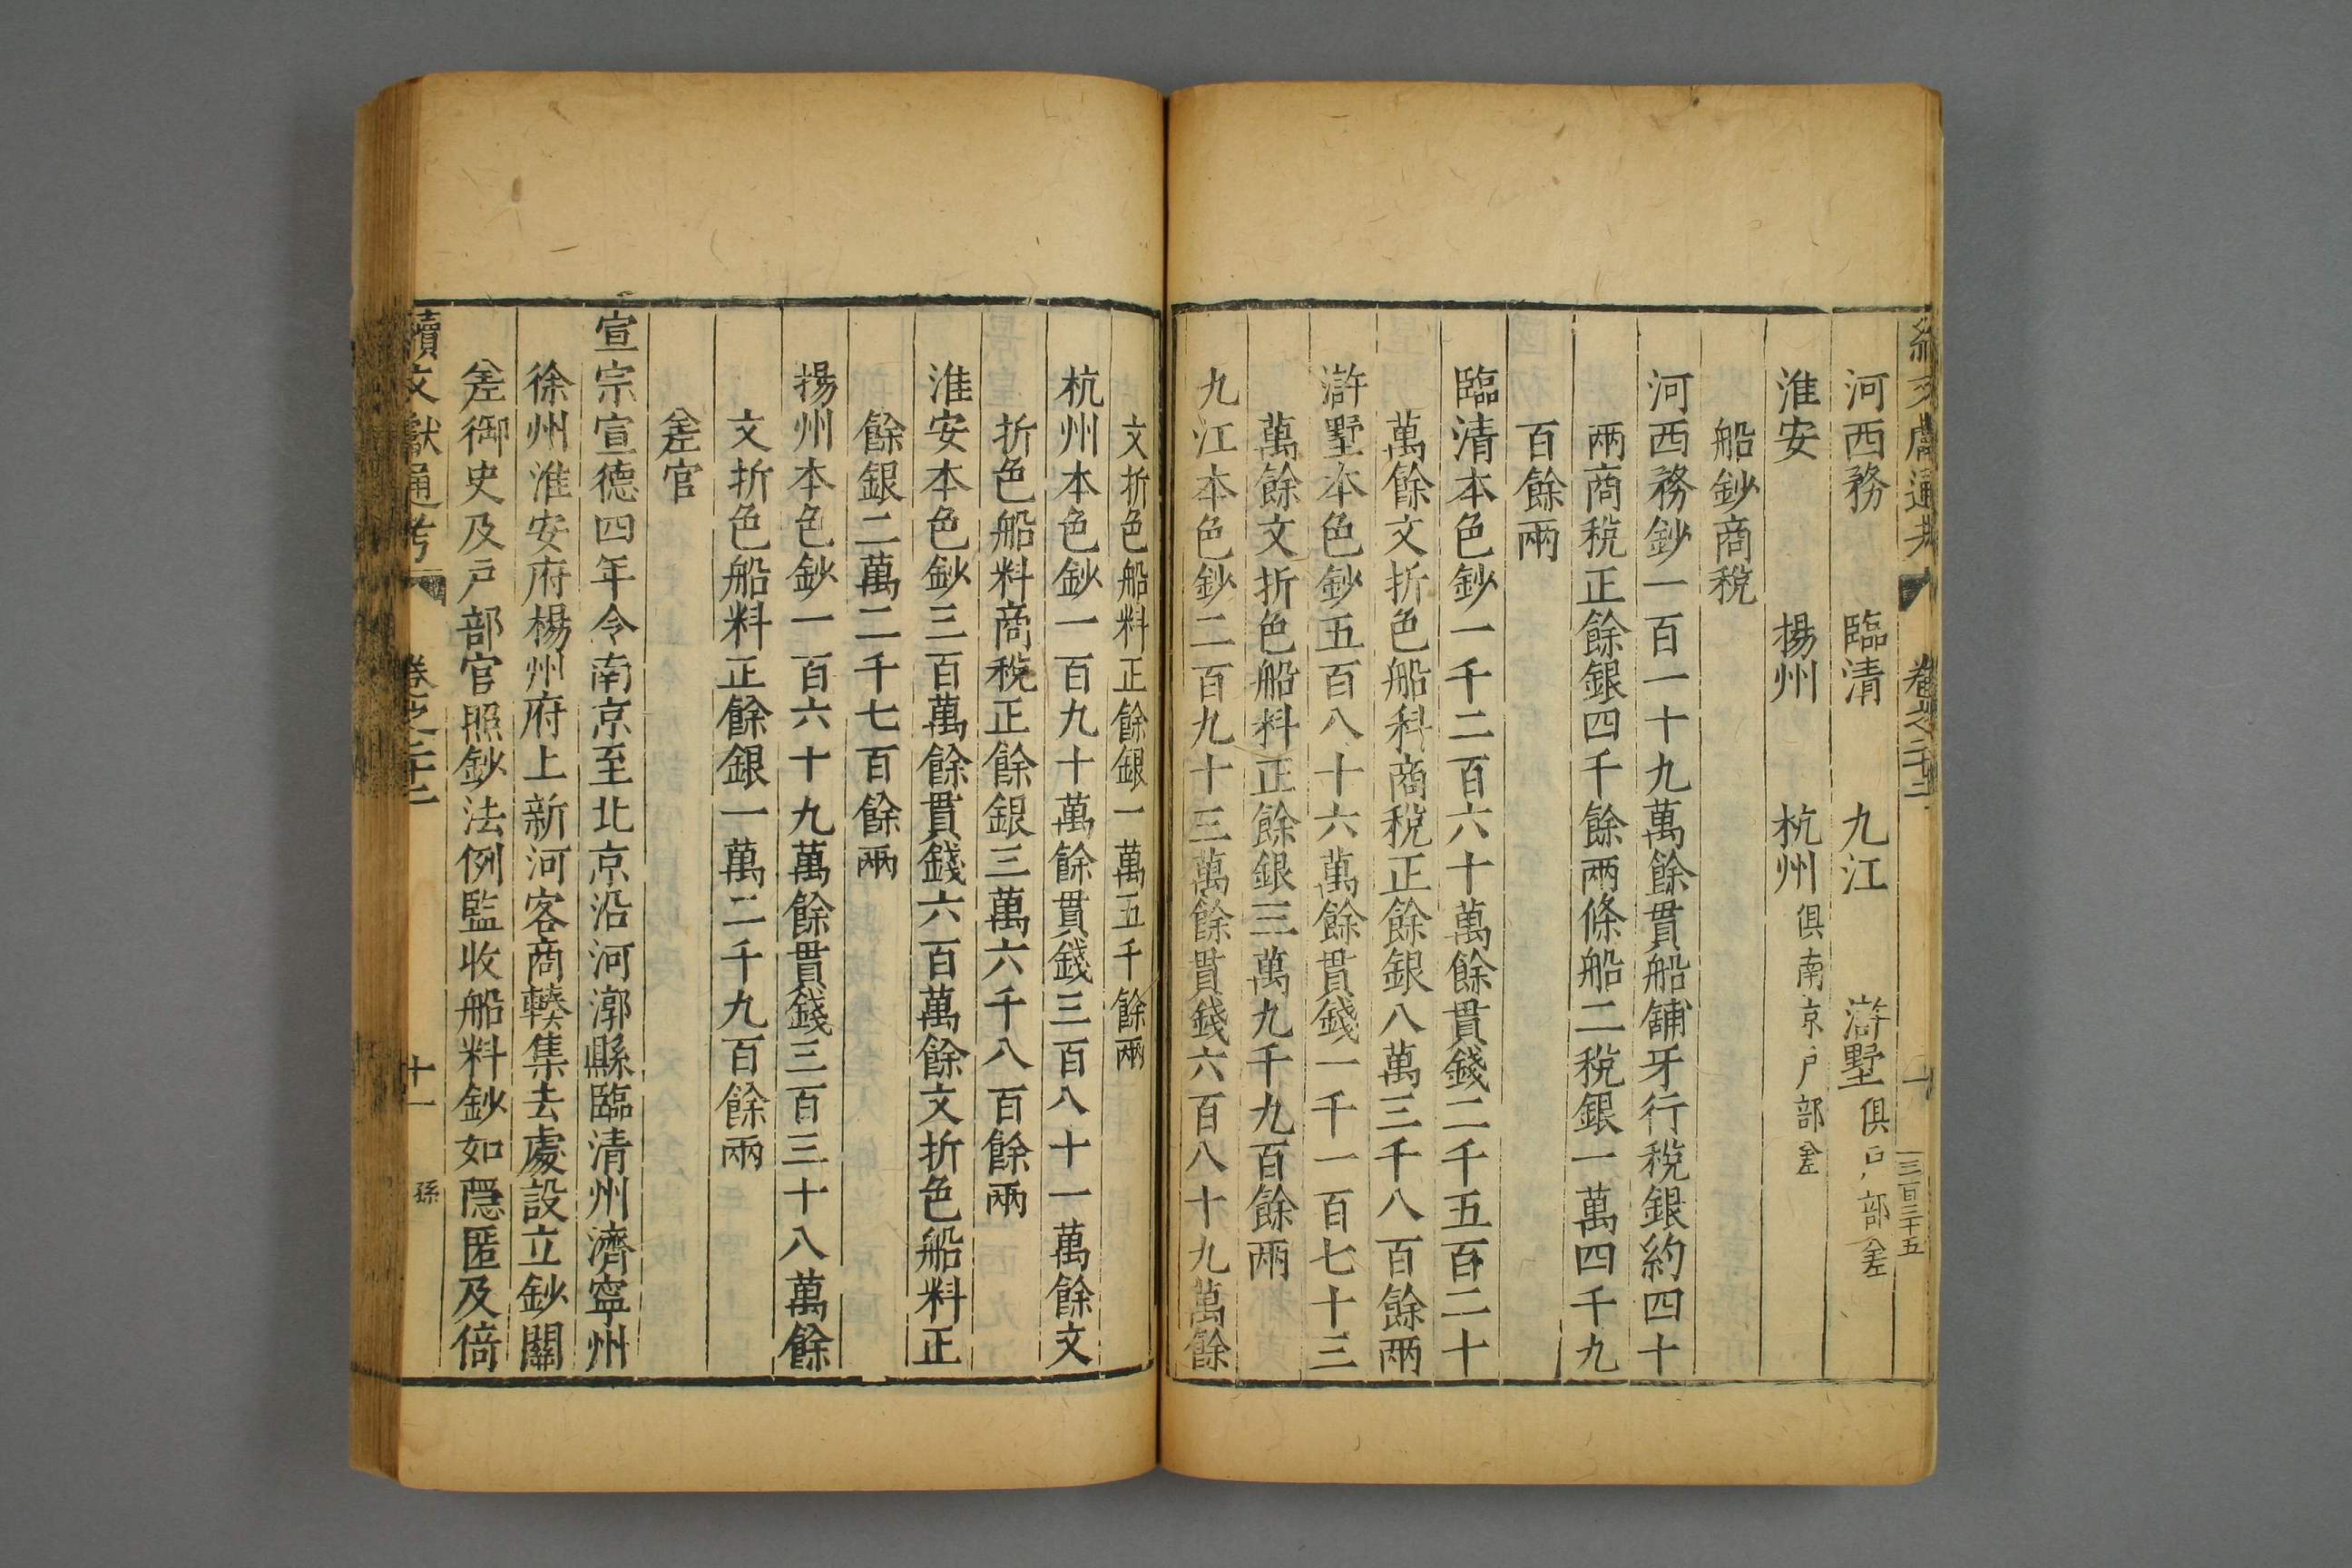 河西務 臨清 九江 滸墅俱戶部差
淮安 揚州 杭州俱南京戶部差
船鈔商稅
河西務鈔一百一十九萬餘貫船舖牙行稅銀約四十
兩商稅正餘銀四千餘兩條船二稅銀一萬四千九
百餘兩
臨清本色鈔一千二百六十萬餘貫錢二千五百二十
萬餘文折色船料商稅正餘銀八萬三千八百餘兩
滸墅本色鈔五百八十六萬餘貫錢一千一百七十三
萬餘文折色船料正餘銀三萬九千九百餘兩
九江本色鈔二百九十三萬餘貫錢六百八十九萬餘
文折色船料正餘銀一萬五千餘兩
杭州本色鈔一百九十萬餘貫錢三百八十一萬餘文
折色船料商稅正餘銀三萬六千八百餘兩
淮安本色鈔三百萬餘貫錢六百萬餘文折色船料正
餘銀二萬二千七百餘兩
揚州本色鈔一百六十九萬餘貫錢三百三十八萬餘
文折色船料正餘銀一萬二千九百餘兩
差官
宣宗宣德四年令南京至北京沿河漷縣臨清州濟寧州
徐州淮安府楊州府上新河客商輳集去處設立鈔關
差御史及戶部官照鈔法例監收船料鈔如隱匿及倍
續文獻通考 卷之二十二 十一 孫